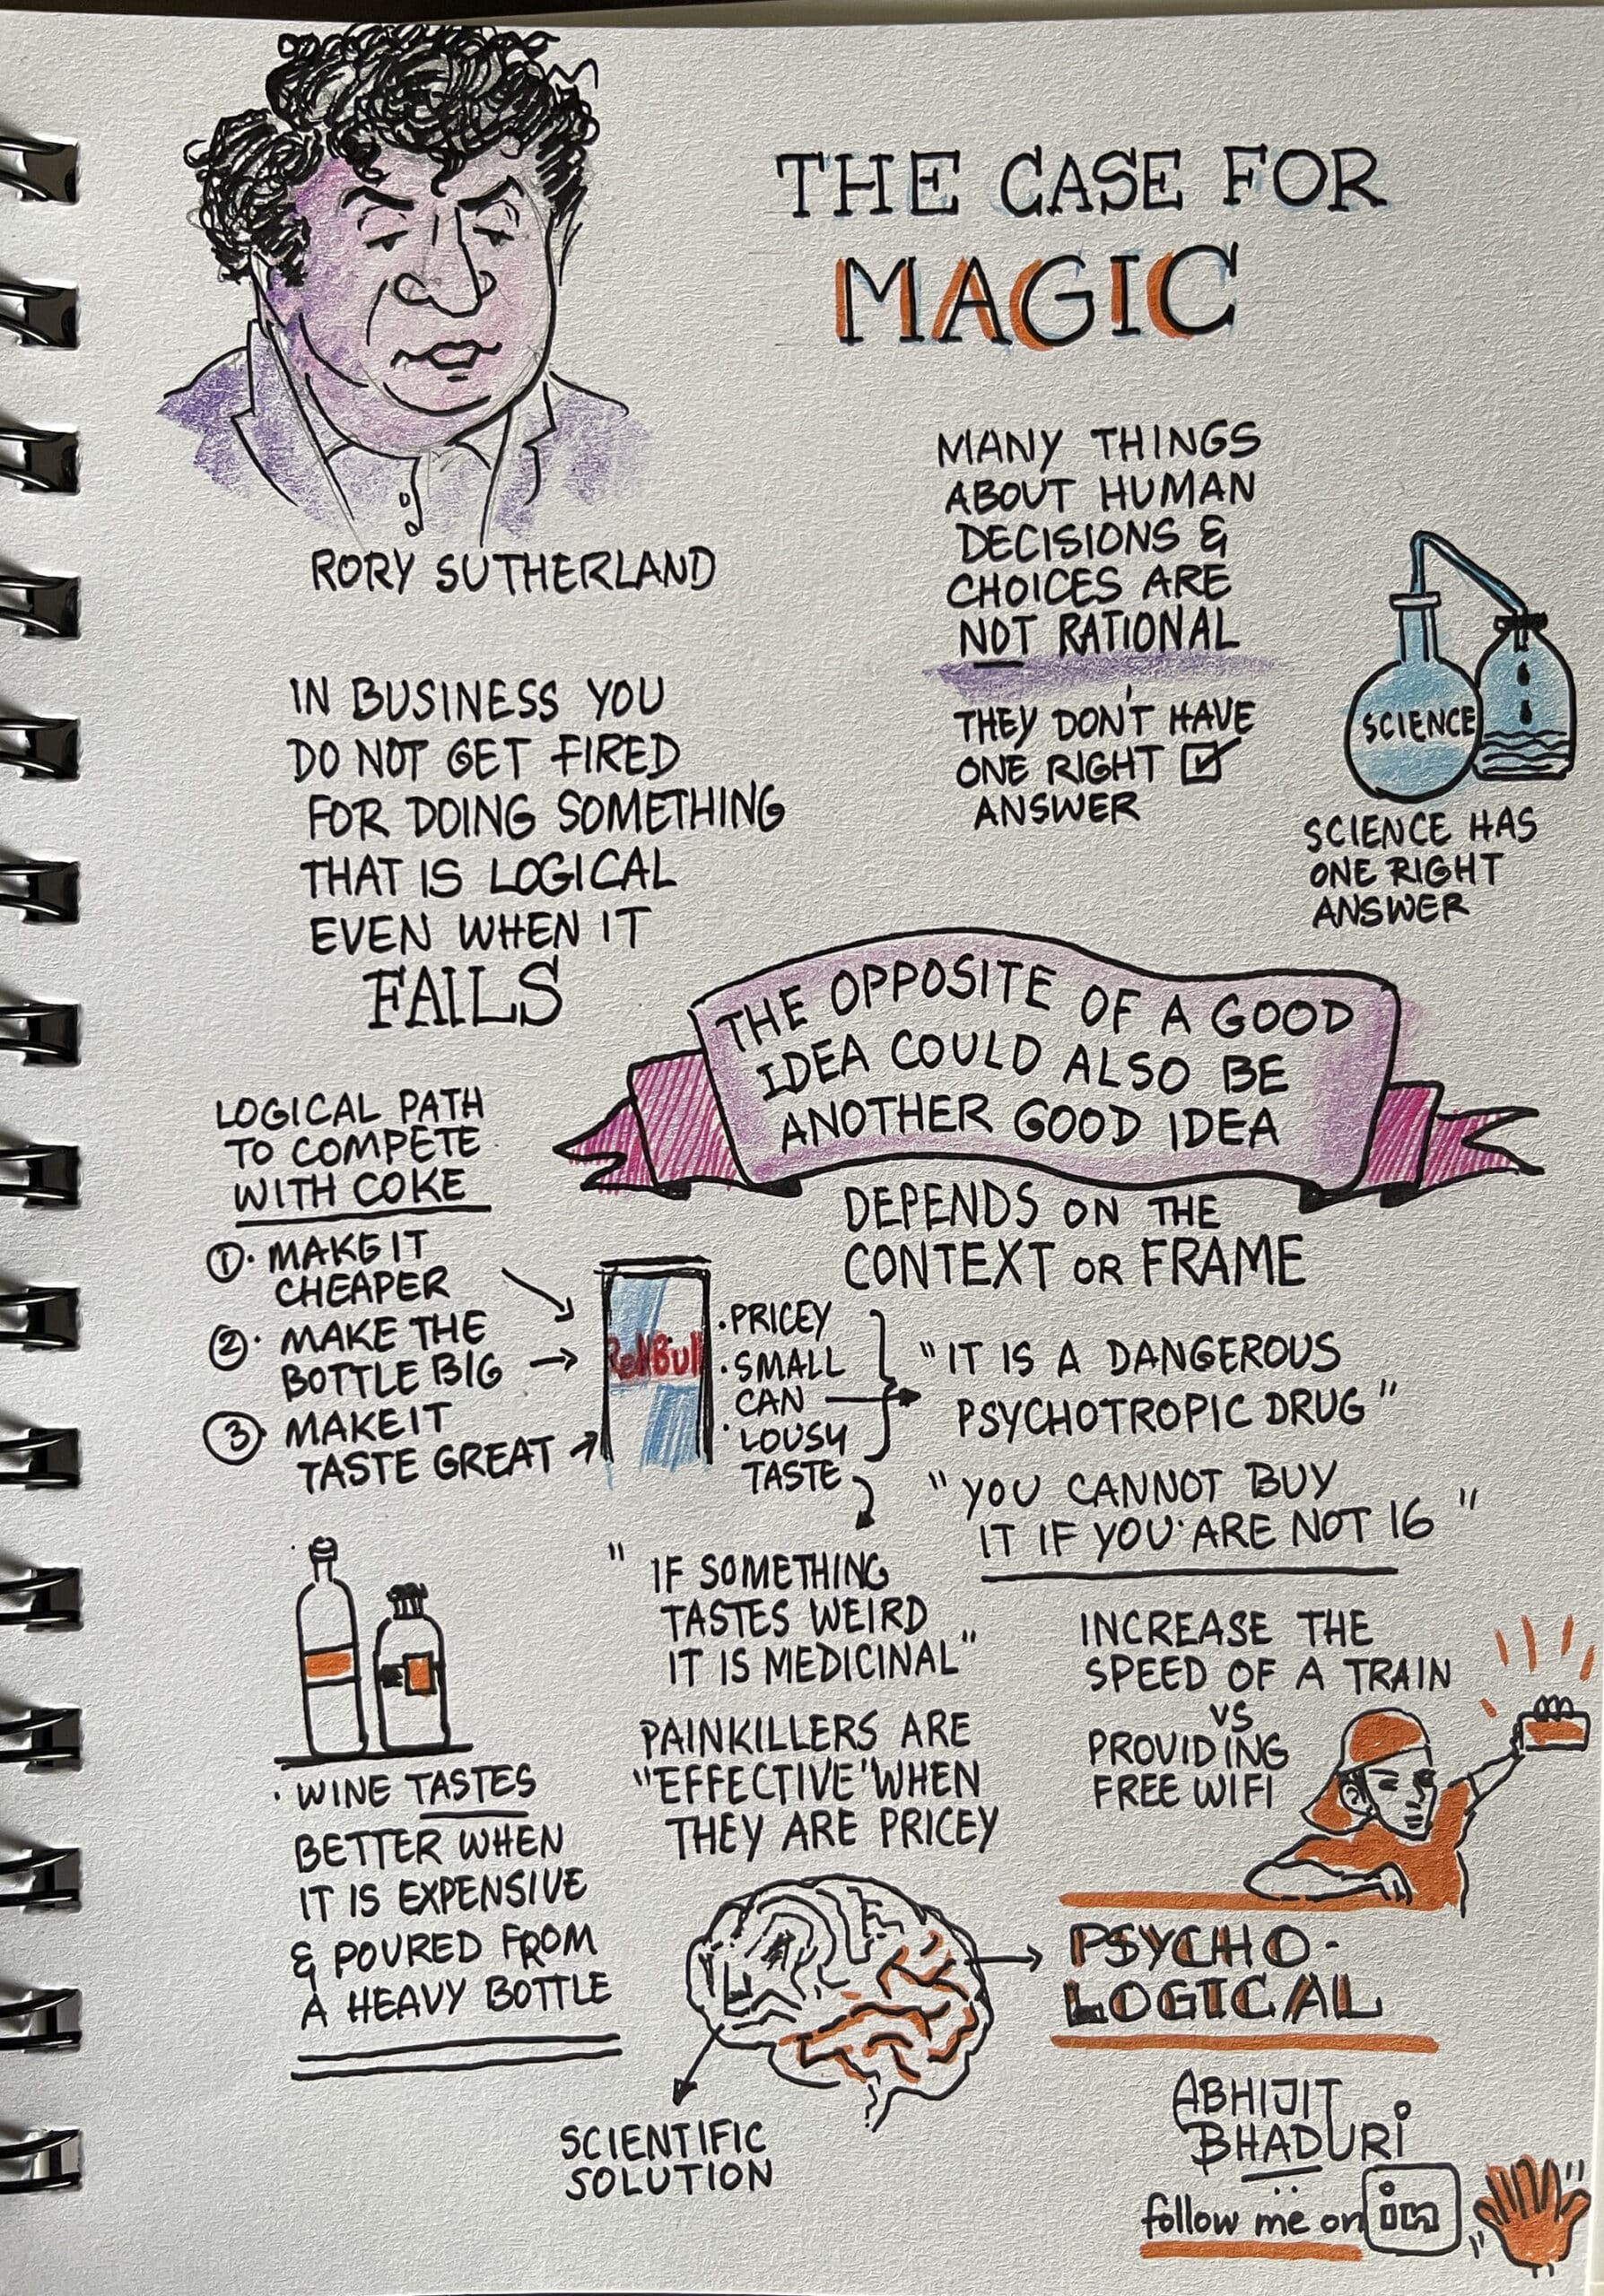 THE CASE FOR
MAGIC
RORY SUTHERLAND
MANY THINGS
ABOUT HUMAN
DECISIONS &
CHOICES ARE
NOT RATIONAL
THEY DON'T HAVE
ONE RIGHT
ANSWER
SCIENCE
SCIENCE HAS
ONE RIGHT
ANSWER
IN BUSINESS YOU
DO NOT GET FIRED
FOR DOING SOMETHING
THAT IS LOGICAL
EVEN WHEN IT
FAILS
THE OPPOSITE OF A GOOD
IDEA COULD ALSO BE
ANOTHER GOOD IDEA
DEPENDS ON THE
CONTEXT OR FRAME
LOGICAL PATH
TO COMPETE
WITH COKE
①· MAKE IT
CHEAPER
②· MAKE THE
BOTTLE BIG
③· MAKE IT
TASTE GREAT
RedBull
· PRICEY
· SMALL
CAN
· LOUSY
TASTE
"IT IS A DANGEROUS
PSYCHOTROPIC DRUG"
"YOU CANNOT BUY
IT IF YOU ARE NOT 16"
"IF SOMETHING
TASTES WEIRD
IT IS MEDICINAL"
PAINKILLERS ARE
"EFFECTIVE" WHEN
THEY ARE PRICEY
INCREASE THE
SPEED OF A TRAIN
VS
PROVIDING
FREE WIFI
· WINE TASTES
BETTER WHEN
IT IS EXPENSIVE
& POURED FROM
A HEAVY BOTTLE
PSYCHO-
LOGICAL
SCIENTIFIC
SOLUTION
ABHIJIT
BHADURI
follow me on in